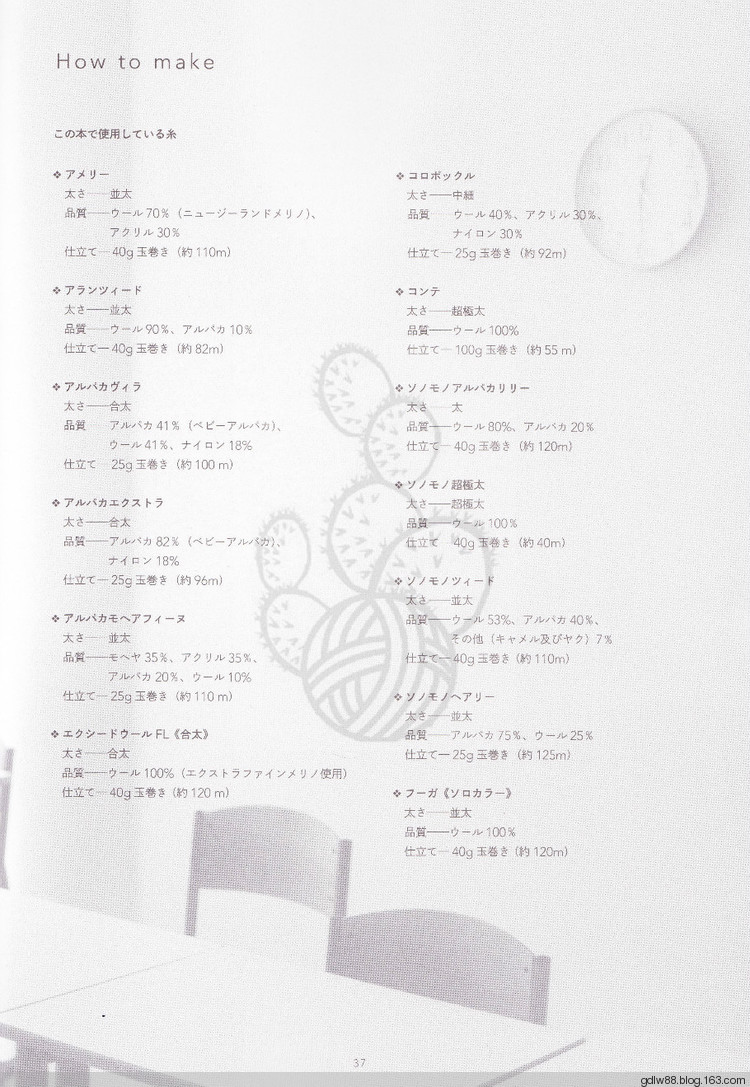 How to make
この本で使用している糸
❖ アメリー
太さ──並太
品質──ウール70%（ニュージーランドメリノ）、
アクリル30%
仕立て─40g玉巻き（約110m）
❖ アランツィード
太さ──並太
品質──ウール90%、アルパカ10%
仕立て─40g玉巻き（約82m）
❖ アルパカヴィラ
太さ──合太
品質──アルパカ41%（ベビーアルパカ）、
ウール41%、ナイロン18%
仕立て─25g玉巻き（約100m）
❖ アルパカエクストラ
太さ──合太
品質──アルパカ82%（ベビーアルパカ）、
ナイロン18%
仕立て─25g玉巻き（約96m）
❖ アルパカモヘアフィーヌ
太さ──並太
品質──モヘヤ35%、アクリル35%、
アルパカ20%、ウール10%
仕立て─25g玉巻き（約110m）
❖ エクシードウールFL《合太》
太さ──合太
品質──ウール100%（エクストラファインメリノ使用）
仕立て─40g玉巻き（約120m）
❖ コロポックル
太さ──中細
品質──ウール40%、アクリル30%、
ナイロン30%
仕立て─25g玉巻き（約92m）
❖ コンテ
太さ──超極太
品質──ウール100%
仕立て─100g玉巻き（約55m）
❖ ソノモノアルパカリリー
太さ──太
品質──ウール80%、アルパカ20%
仕立て─40g玉巻き（約120m）
❖ ソノモノ超極太
太さ──超極太
品質──ウール100%
仕立て─40g玉巻き（約40m）
❖ ソノモノツィード
太さ──並太
品質──ウール53%、アルパカ40%、
その他（キャメル及びヤク）7%
仕立て─40g玉巻き（約110m）
❖ ソノモノヘアリー
太さ──並太
品質──アルパカ75%、ウール25%
仕立て─25g玉巻き（約125m）
❖ フーガ《ソロカラー》
太さ──並太
品質──ウール100%
仕立て─40g玉巻き（約120m）
37
gdlw88.blog.163.com